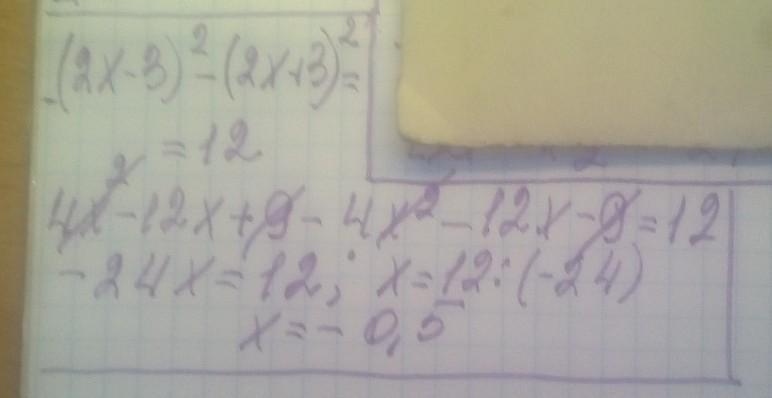 (2x-3)²-(2x+3)²=
=12
4x²-12x+9-4x²-12x-9=12
-24x=12; x=12:(-24)
x=-0,5